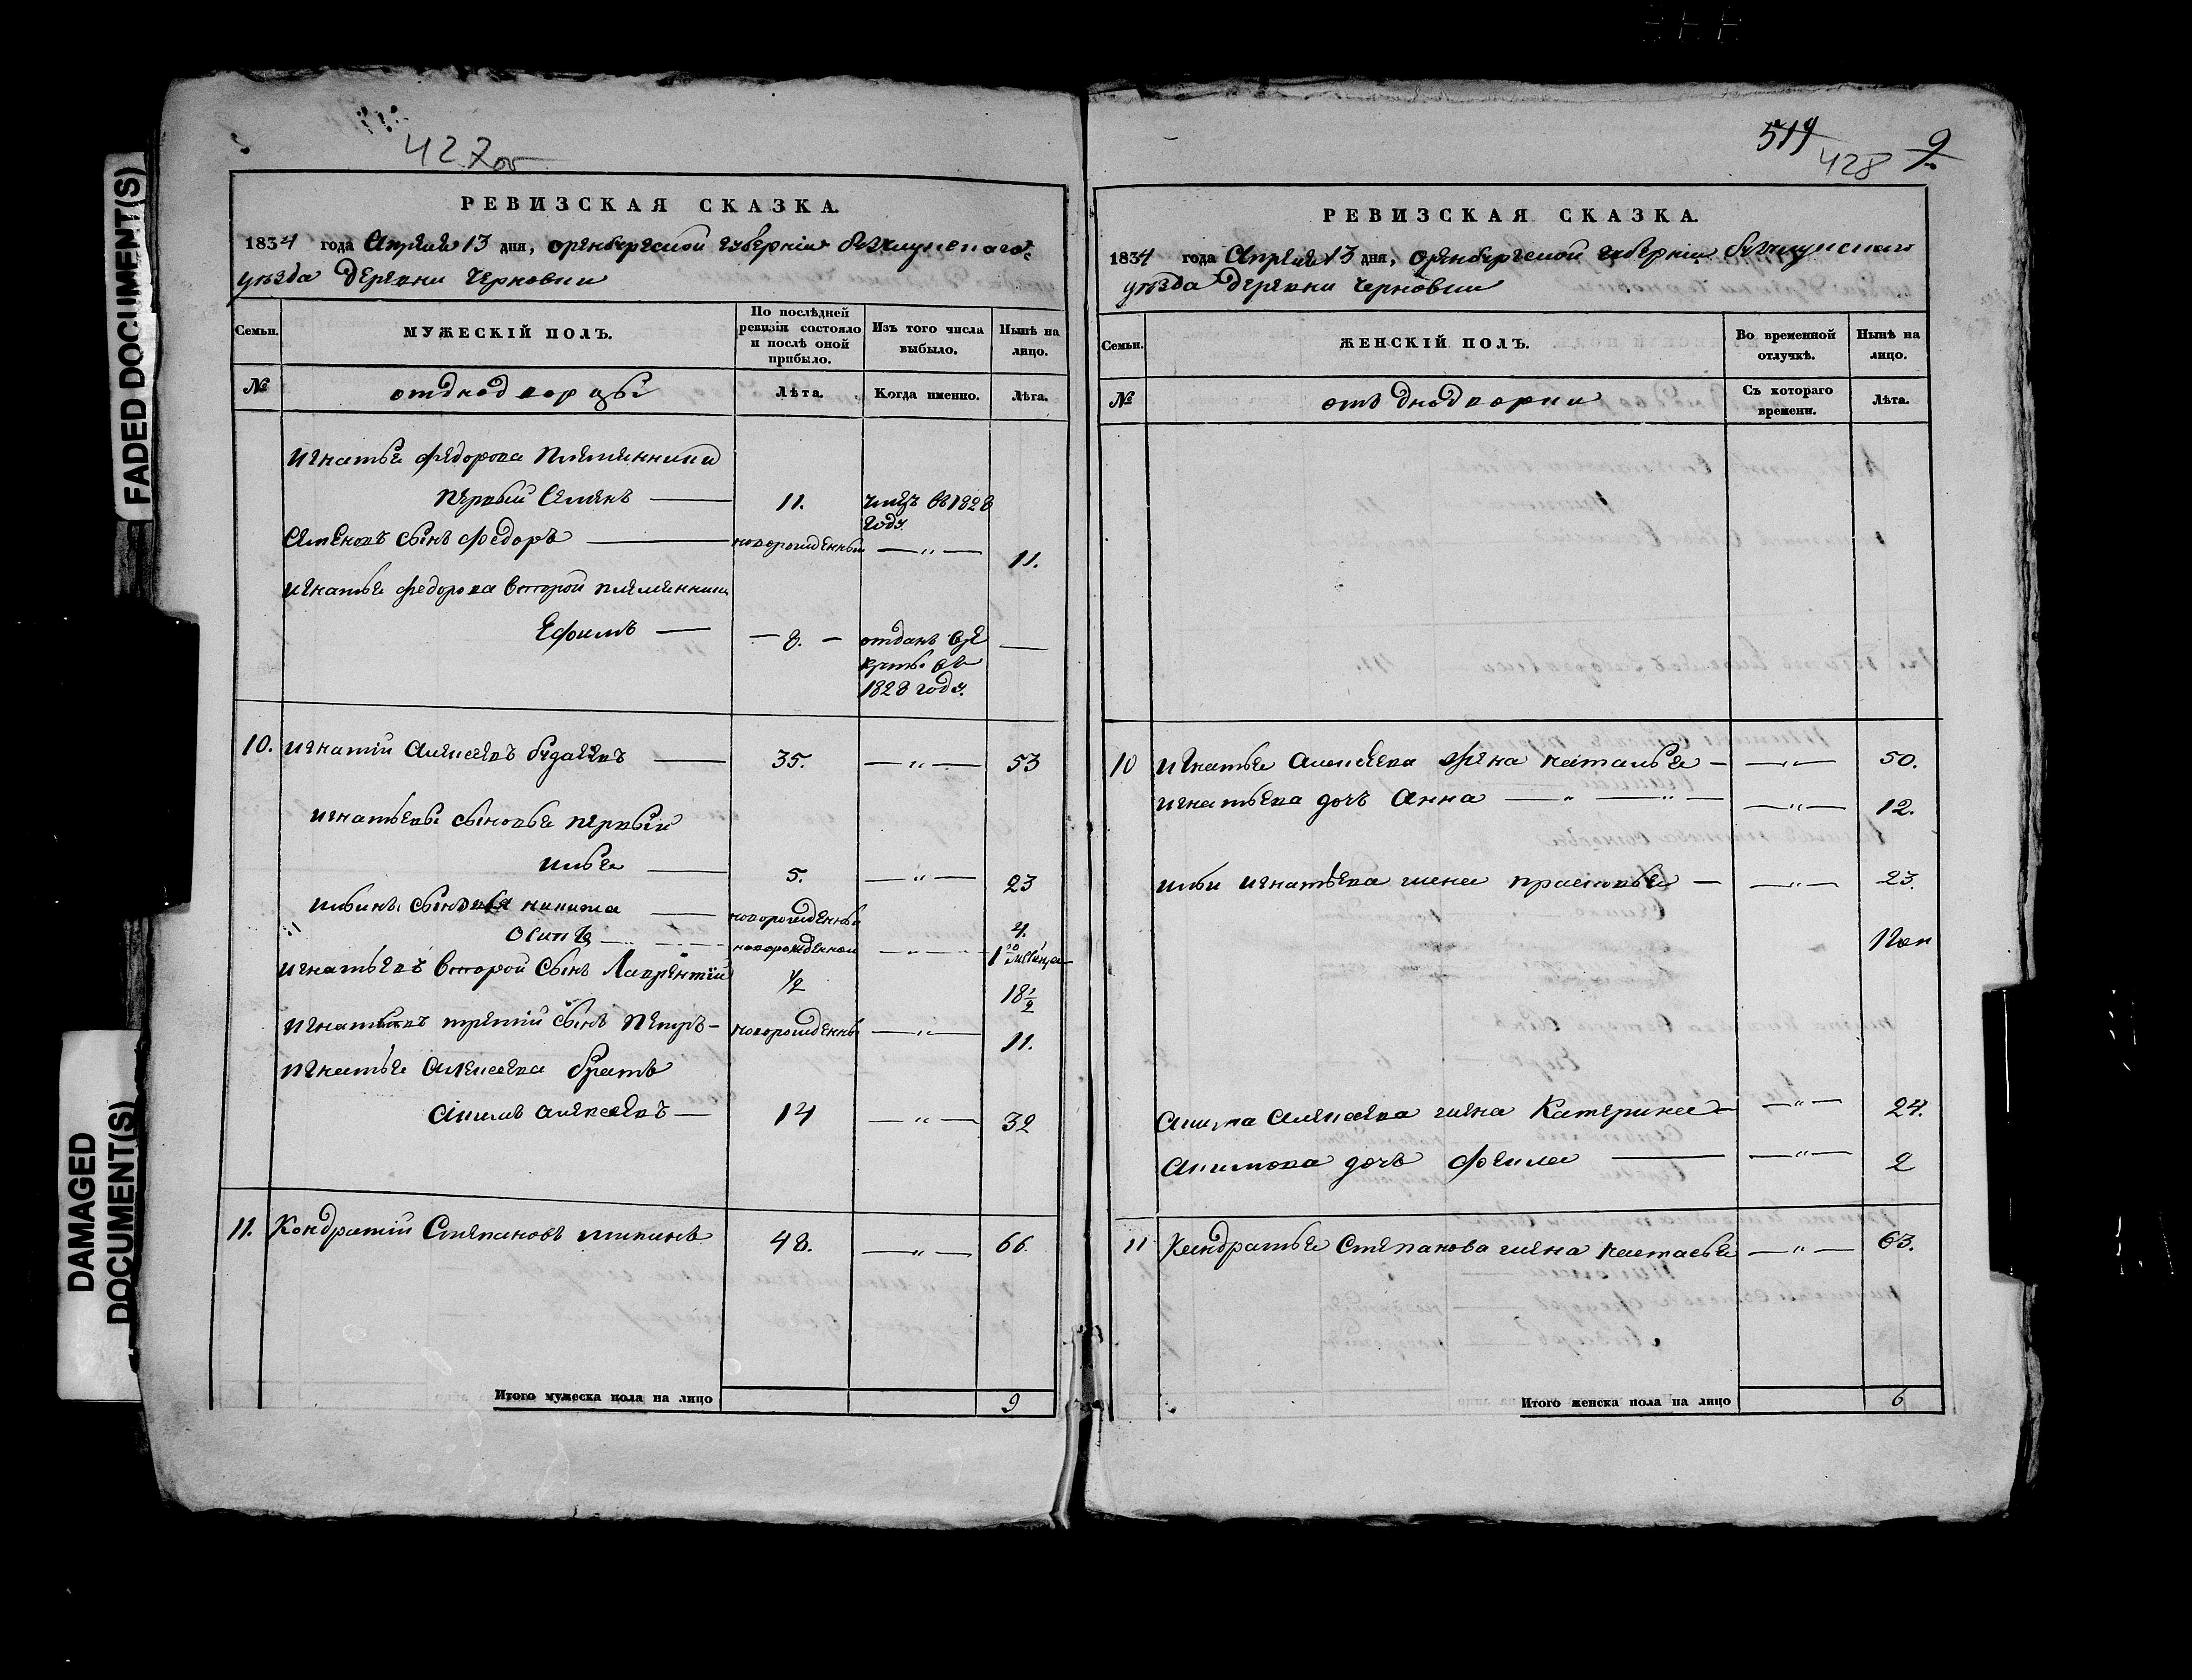 FADED DOCUMENT(S)
DAMAGED
DOCUMENT(S)
427об
РЕВИЗСКАЯ СКАЗКА.
1834 года Апреля 13 дня, оренбурской губернiи бузулуцкаго
уѣзда деревни Черновки
Семьи.
МУЖЕСКІЙ ПОЛЪ.
По послѣдней ревизіи состояло и послѣ оной прибыло.
Изъ того числа выбыло.
Нынѣ на лицо.
№
отднодворцы
Лѣта.
Когда именно.
Лѣта.
Игнатья федорова племянники
первый Семенъ — 11. 1828 году
Семеновъ сынъ федоръ — новорожденный — " — 11.
Игнатья федорова второй племянникъ
Ефимъ — 8. — отданъ въ 1828 году. —
10. Игнатiй Алексеевъ — 35. — " — 53
Игнатьевы сыновья первый
Илья — 5. — " — 23
Ильины сыновья никита — новорожденный 4.
Осипъ — новорожденной — " — 1
Игнатьевъ второй сынъ Лаврентiй 1/2 18 1/2
Игнатьевъ третiй сынъ петръ — новорожденны — " — 11.
Игнатья Алексеева братъ
Акимъ алексеевъ — 14 — " — 32
11. Кондратiй Степановъ 48. — " — 66.
Итого мужеска пола на лицо 9
514 428 9
РЕВИЗСКАЯ СКАЗКА.
1834 года Апреля 13 дня, Оренбурской губернiи бузулуцкаго
уѣзда деревни Черновки
Семьи.
ЖЕНСКІЙ ПОЛЪ.
Во временной отлучкѣ.
Нынѣ на лицо.
№
отъ днодворки
Съ котораго времени.
Лѣта.
10 Игнатья Алексеева жена наталья — — " — 50.
Игнатьева дочъ Анна — " — " — — " — 12.
ильи игнатьева жена прасковья — — " — 23.
Акима Алексеева жена Катерина — — " — 24.
Акимова дочъ — — " — 2
11 Кандратья Степанова жена настасья — " — 63.
Итого женска пола на лицо 6